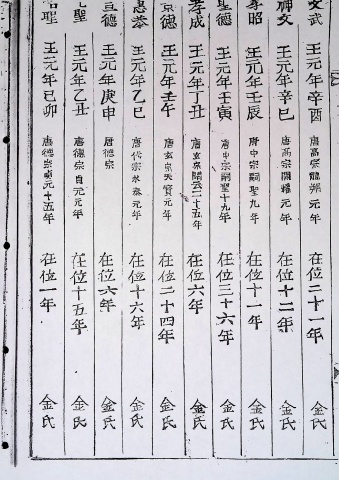 文武 王元年辛酉 唐高宗龍朔元年 在位二十一年 金氏
神文 王元年辛巳 唐高宗開耀元年 在位十二年 金氏
孝昭 王元年壬辰 唐中宗嗣聖九年 在位十一年 金氏
聖德 王元年壬寅 唐中宗嗣聖十九年 在位三十六年 金氏
孝成 王元年丁丑 唐玄宗開元二十五年 在位六年 金氏
景德 王元年壬午 唐玄宗天寶元年 在位二十四年 金氏
惠恭 王元年乙巳 唐代宗永泰元年 在位十六年 金氏
宣德 王元年庚申 唐德宗 在位六年 金氏
聖 王元年乙丑 唐德宗貞元元年 在位十五年 金氏
昭聖 王元年己卯 唐德宗貞元十五年 在位一年 金氏